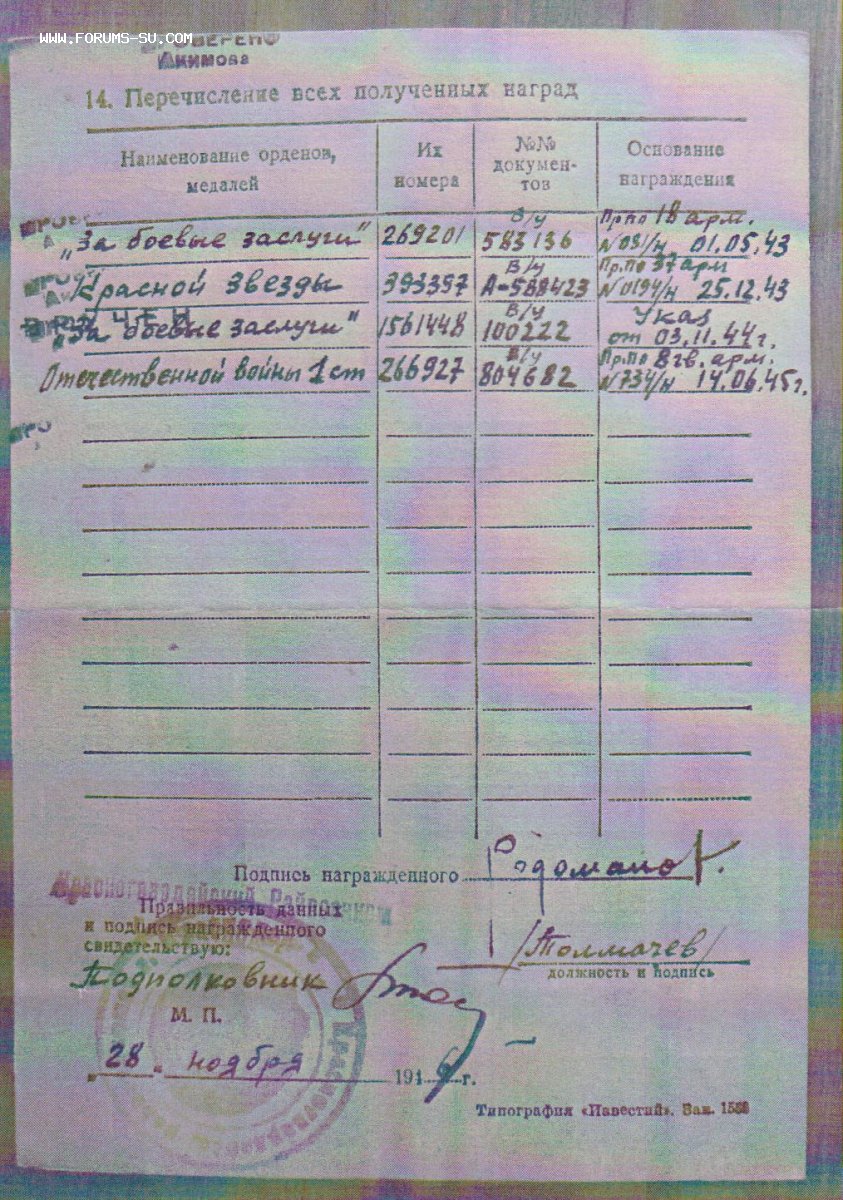 www.forums-su.com
Акимова
14. Перечисление всех полученных наград
Наименование орденов, медалей
Их номера
№№ документов
Основание награждения
„За боевые заслуги" 269201 В/у 583136 Пр.по 18 арм. N 031/н 01.05.43
Красной Звезды 393397 В/у А-588423 Пр.по 37 арм N 0194/н 25.12.43
„За боевые заслуги" 1561448 В/у 100222 Указ от 03.11.44г.
Отечественной войны 1 ст 266927 В/у 804682 Пр.по 8 гв. арм. N 734/н 14.06.45г.
Подпись награжденного
Красногвардейский Райвоенком
Правильность данных
и подпись награжденного
свидетельствую:
/Толмачев/
должность и подпись
Подполковник
М. П.
„28" ноября 194 г.
Типография «Известий». Зак.